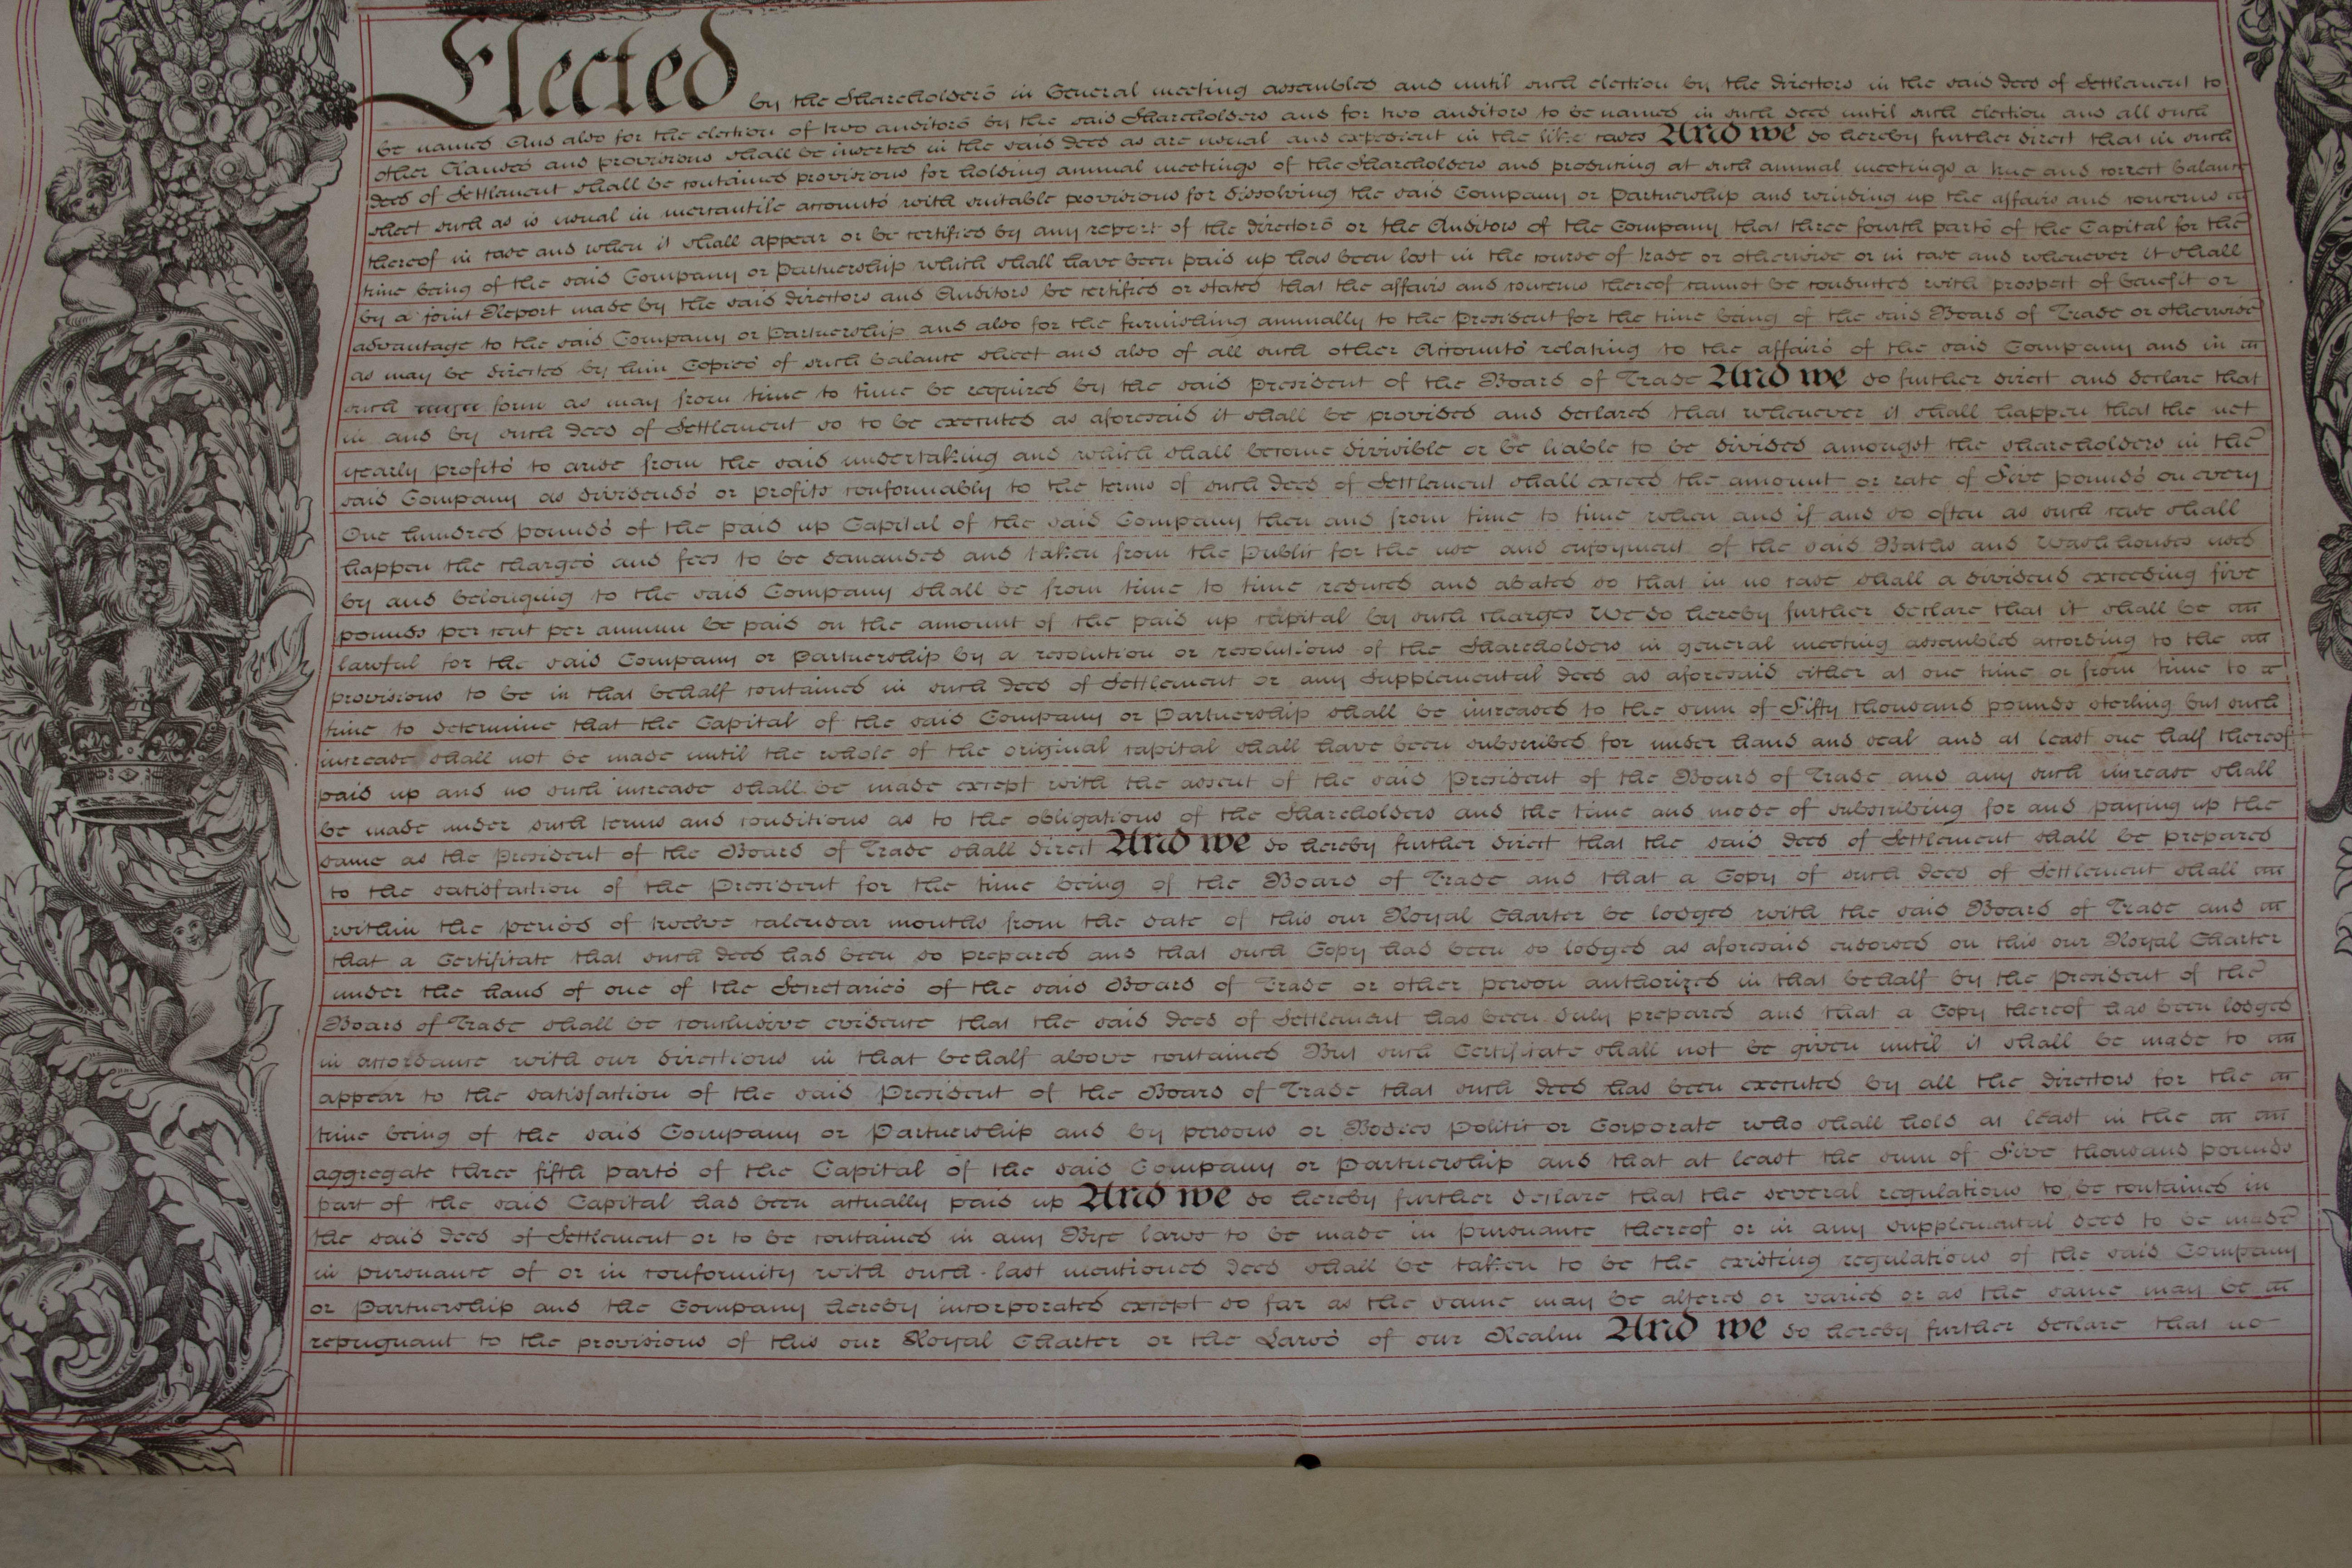 Elected by the Shareholders in General meeting assembled and until such election by the directors in the said deed of Settlement to
be named And also for the election of two auditors by the said Shareholders and for two auditors to be named in such deed until such election and all such
other Clauses and provisions shall be inserted in the said deed as are usual and expedient in the like cases And we do hereby further direct that in such
deed of Settlement shall be contained provisions for holding annual meetings of the Shareholders and producing at such annual meetings a true and correct balance
sheet such as is usual in mercantile accounts with suitable provisions for dissolving the said Company or Partnership and winding up the affairs and concerns
thereof in case and when it shall appear or be certified by any report of the directors or the Auditors of the Company that three fourth parts of the Capital for the
time being of the said Company or Partnership which shall have been paid up has been lost in the course of trade or otherwise or in case and whenever it shall
by a joint Report made by the said directors and Auditors be certified or stated that the affairs and concerns thereof cannot be conducted with prospect of benefit or
advantage to the said Company or Partnership and also for the furnishing annually to the President for the time being of the said Board of Trade or otherwise
as may be directed by him Copies of such balance sheet and also of all such other Accounts relating to the affairs of the said Company and in
such form as may from time to time be required by the said president of the Board of Trade And we do further direct and declare that
in and by such deed of Settlement so to be executed as aforesaid it shall be provided and declared that whenever it shall happen that the net
yearly profits to arise from the said undertaking and which shall become divisible or be liable to be divided amongst the shareholders in the
said Company as dividends or profits conformably to the terms of such deed of Settlement shall exceed the amount or rate of Five pounds on every
One hundred pounds of the paid up Capital of the said Company then and from time to time when and if and so often as such case shall
happen the charges and fees to be demanded and taken from the public for the use and enjoyment of the said Baths and Washhouses used
by and belonging to the said Company shall be from time to time reduced and abated so that in no case shall a dividend exceeding five
pounds per cent per annum be paid on the amount of the paid up capital by such charges We do hereby further declare that it shall be
lawful for the said Company or Partnership by a resolution or resolutions of the Shareholders in general meeting assembled according to the
provisions to be in that behalf contained in such deed of Settlement or any Supplemental deed as aforesaid either at one time or from time to
time to determine that the Capital of the said Company or Partnership shall be increased to the sum of Fifty thousand pounds sterling but such
increase shall not be made until the whole of the original capital shall have been subscribed for under hand and seal and at least one half thereof
paid up and no such increase shall be made except with the assent of the said President of the Board of Trade and any such increase shall
be made under such terms and conditions as to the obligations of the Shareholders and the time and mode of subscribing for and paying up the
same as the president of the Board of Trade shall direct And we do hereby further direct that the said deed of Settlement shall be prepared
to the satisfaction of the President for the time being of the Board of Trade and that a Copy of such deed of Settlement shall
within the period of twelve calendar months from the date of this our Royal Charter be lodged with the said Board of Trade and
that a Certificate that such deed had been so prepared and that such Copy had been so lodged as aforesaid endorsed on this our Royal Charter
under the hand of one of the Secretaries of the said Board of Trade or other person authorized in that behalf by the president of the
Board of Trade shall be conclusive evidence that the said deed of Settlement has been duly prepared and that a Copy thereof has been lodged
in accordance with our directions in that behalf above contained But such Certificate shall not be given until it shall be made to
appear to the satisfaction of the said President of the Board of Trade that such deed has been executed by all the directors for the
time being of the said Company or Partnership and by persons or Bodies Politic or Corporate who shall hold at least in the
aggregate three fifth parts of the Capital of the said Company or Partnership and that at least the sum of Five thousand pounds
part of the said Capital has been actually paid up And we do hereby further declare that the several regulations to be contained in
the said deed of Settlement or to be contained in any Bye laws to be made in pursuance thereof or in any supplemental deed to be made
in pursuance of or in conformity with such last mentioned deed shall be taken to be the existing regulations of the said Company
or Partnership and the Company hereby incorporated except so far as the same may be altered or varied or as the same may be
repugnant to the provisions of this our Royal Charter or the Laws of our Realm And we do hereby further declare that no